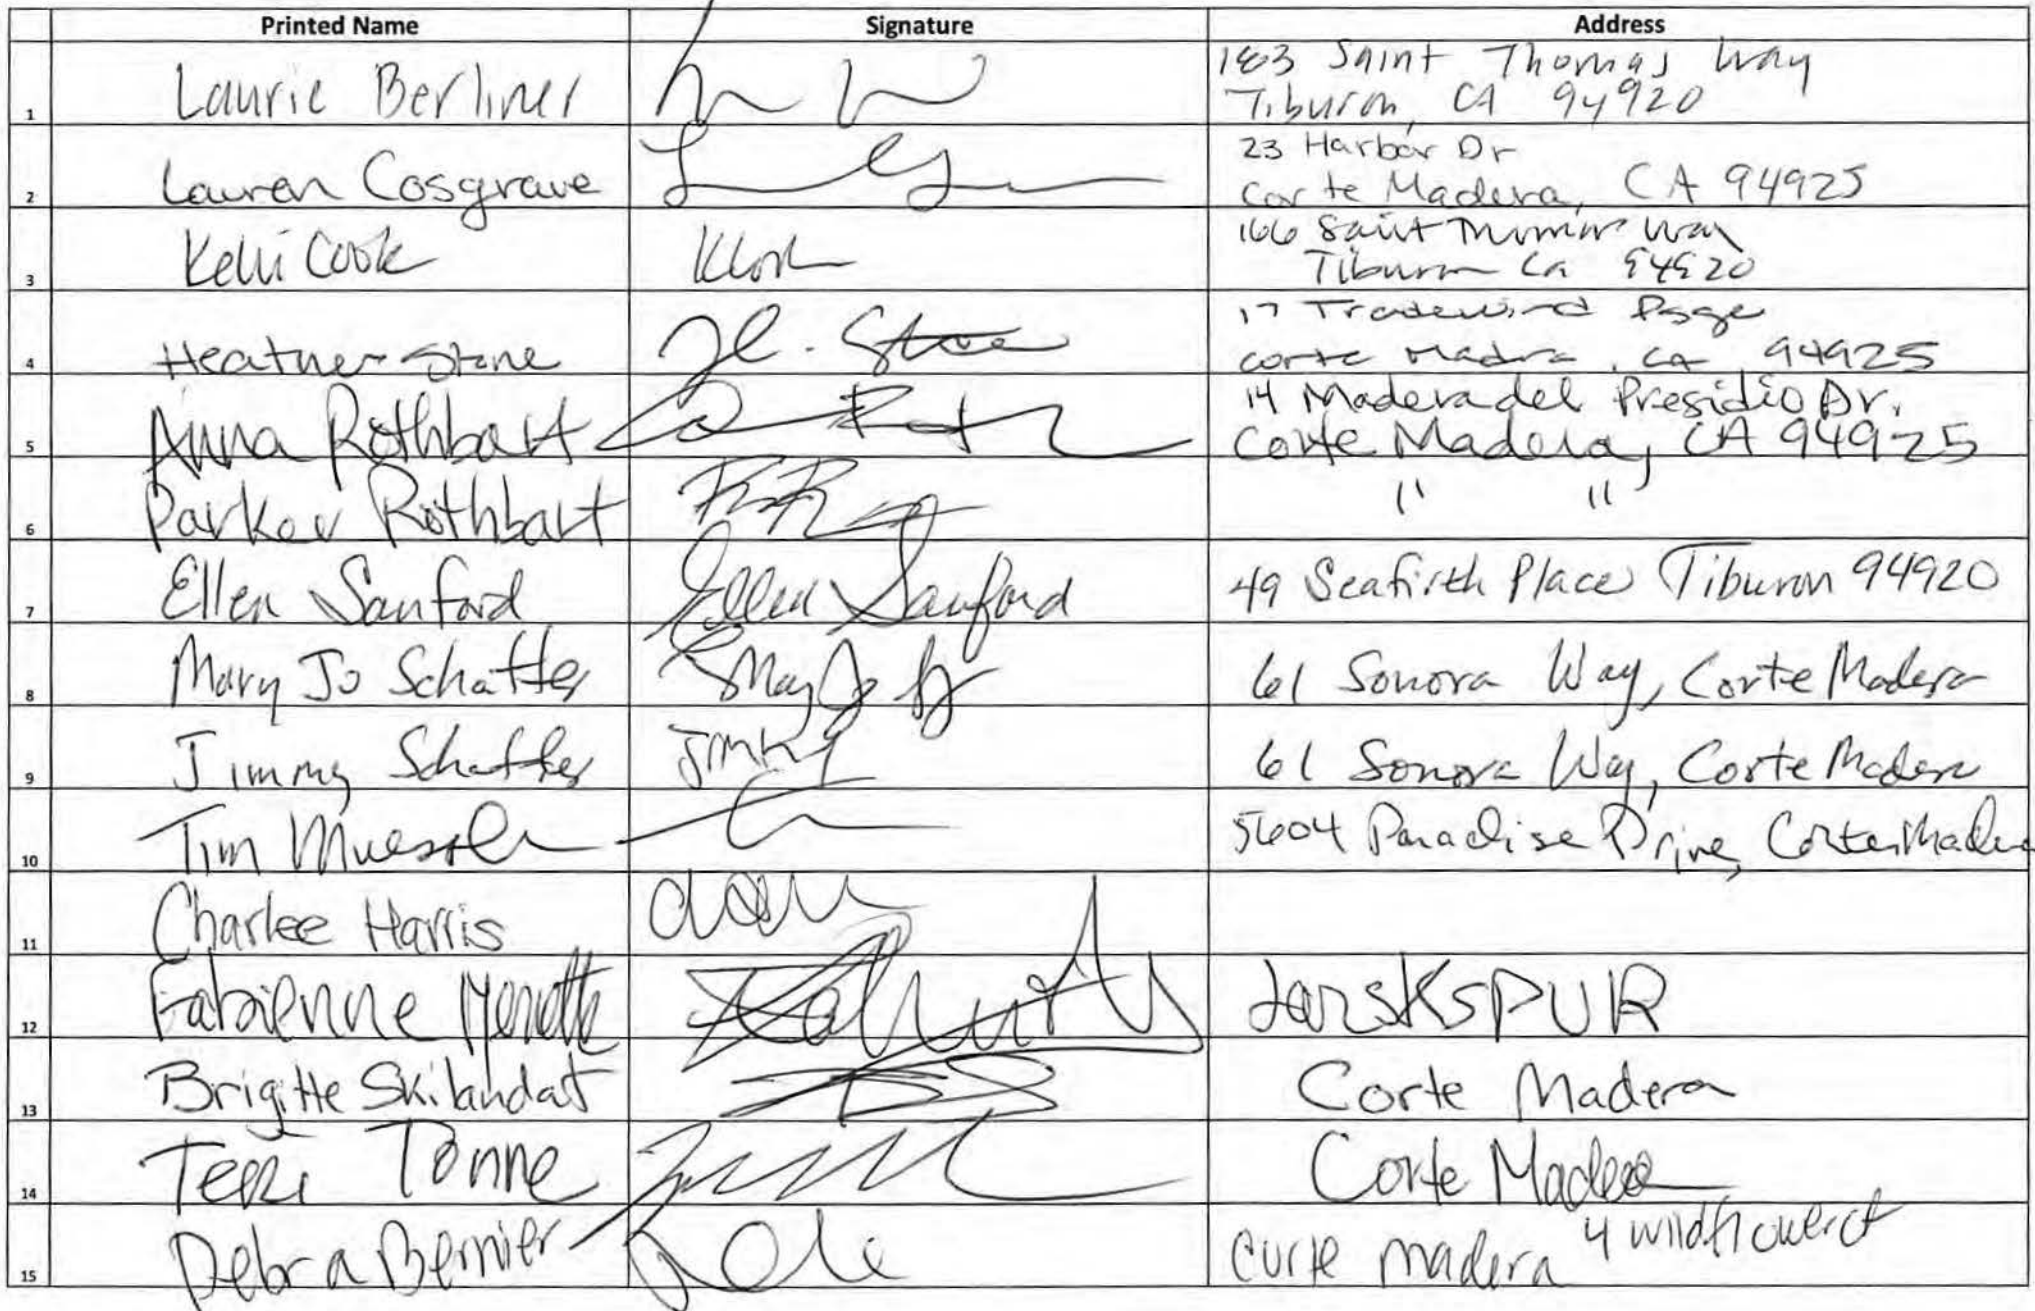 Printed Name Signature Address
1 Laurie Berliner 183 Saint Thomas Way
Tiburon, CA 94920
2 Lauren Cosgrave 23 Harbor Dr
Corte Madera, CA 94925
3 Kelli Cook 166 Saint Thomas Way
Tiburon Ca 94920
4 Heather Stone H. Stone 17 Tradewind Psge
Corte Madera, CA 94925
5 Anna Rothbart 14 Madera del Presidio Dr.
Corte Madera, CA 94925
6 Parker Rothbart " "
7 Ellen Sanford Ellen Sanford 49 Seafirth Place Tiburon 94920
8 Mary Jo Schaffer 61 Sonora Way, Corte Madera
9 Jimmy Schaffer Jimmy 61 Sonora Way, Corte Madera
10 Tim 5604 Paradise Drive, Corte Madera
11 Charlee Harris
12 Fabienne
13 Brigitte Skilandat BS Corte Madera
14 Terri Tonne Corte Madera
15 Debra Bernier Corte Madera 4 wildflower ct